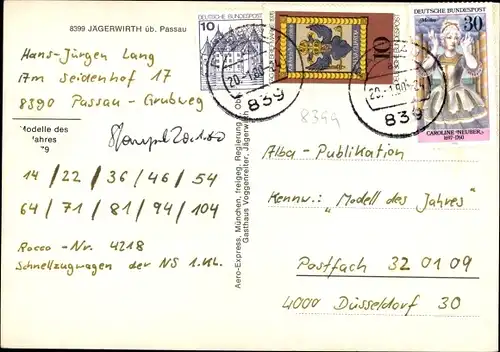 8399 JÄGERWIRTH üb. Passau
Hans-Jürgen Lang
Am Seidenhof 17
8390 Passau-Grubweg
Modelle des
Jahres
14 / 22 / 36 / 46 / 54
64 / 71 / 81 / 94 / 104
Rocco-Nr. 4218
Schnellzugwagen der NS 1.Kl.
Aero-Express, München, freigeg. Regierung
Gasthaus Voggenreiter, Jägerwirth
DEUTSCHE BUNDESPOST
10
10
DEUTSCHE BUNDESPOST
30
CAROLINE NEUBER
1697-1760
20.-1.80
839
20.-1.80
839
8399
Alba-Publikation
Kennw.: "Modell des Jahres"
Postfach 32 01 09
4000 Düsseldorf 30